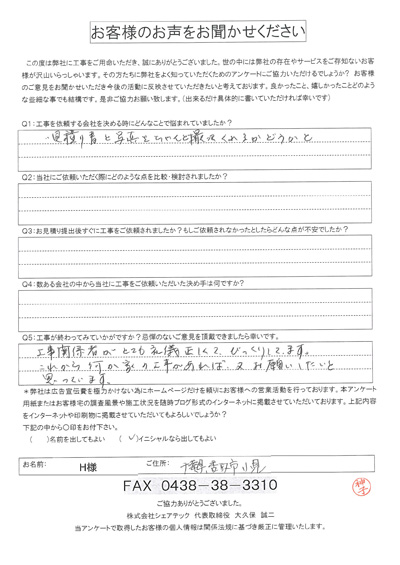 お客様のお声をお聞かせください
この度は弊社に工事をご用命いただき、誠にありがとうございました。世の中には弊社の存在やサービスをご存知ないお客
様が沢山いらっしゃいます。その方たちに弊社をよく知っていただくためのアンケートにご協力いただけるでしょうか？ お客様
のご意見をお聞かせいただき今後の活動に反映させていただきたいと考えております。良かったこと、嬉しかったことどのよう
な些細な事でも結構です。是非ご協力お願い致します。(出来るだけ具体的に書いていただければ幸いです)
Q1:工事を依頼する会社を決める時にどんなことで悩まれていましたか？
見積り書と写真をちゃんと撮ってくれるかどうかと
Q2:当社にご依頼いただく際にどのような点を比較・検討されましたか？
Q3:お見積り提出後すぐに工事をご依頼されましたか？もしご依頼されなかったとしたらどんな点が不安でしたか？
Q4:数ある会社の中から当社に工事をご依頼いただいた決め手は何ですか？
Q5:工事が終わってみていかがですか？忌憚のないご意見を頂戴できましたら幸いです。
工事関係者がとても礼儀正しくて、びっくりしてます。
これから何か家の工事があれば、又お願いしたいと
思っています。
*弊社は広告宣伝費を極力かけない為にホームページだけを頼りにお客様への営業活動を行っております。本アンケート
用紙またはお客様宅の調査風景や施工状況を随時ブログ形式のインターネットに掲載させていただいております。上記内容
をインターネットや印刷物に掲載させていただいてもよろしいでしょうか？
下記の中から〇印をお付下さい。
(　)名前を出してもよい　(✓)イニシャルなら出してもよい
お名前： H様 ご住所：
FAX 0438-38-3310
ご協力ありがとうございました。
株式会社シェアテック 代表取締役 大久保 誠二
当アンケートで取得したお客様の個人情報は関係法規に基づき厳正に管理いたします。